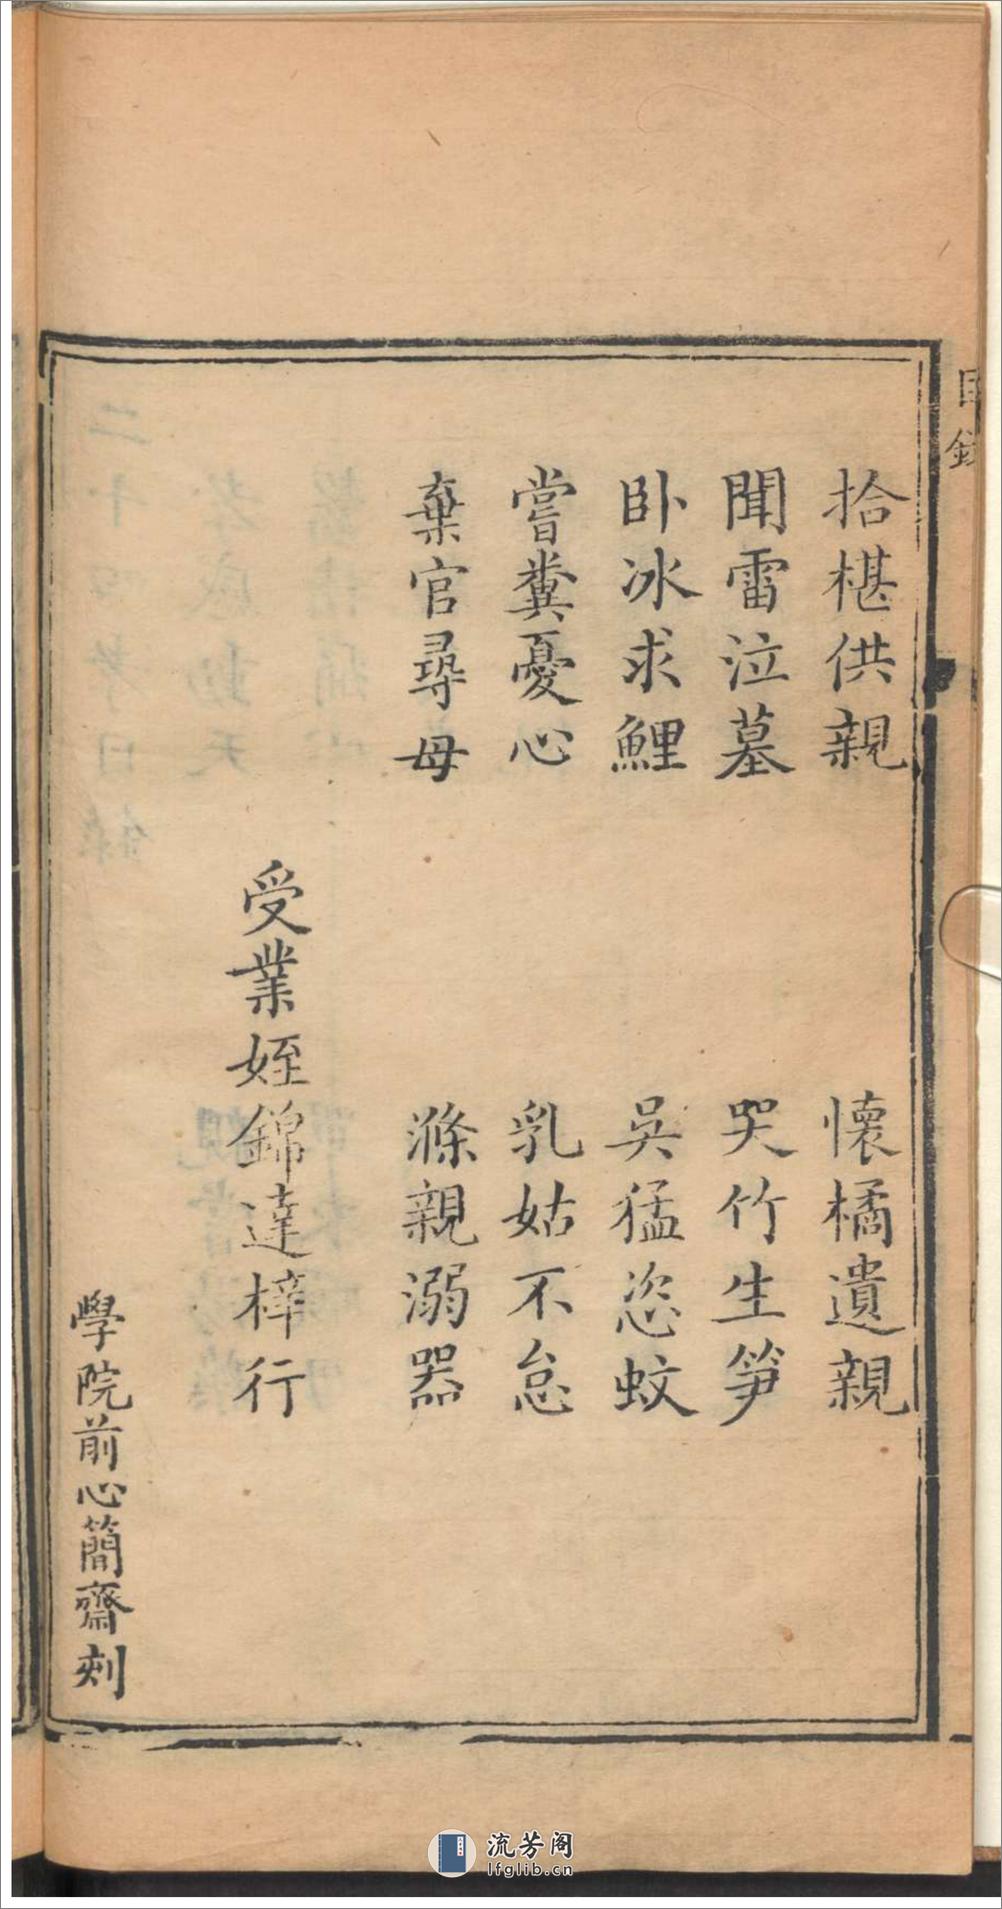 目錄
拾椹供親　懷橘遺親
聞雷泣墓　哭竹生笋
卧冰求鯉　吳猛恣蚊
嘗糞憂心　乳姑不怠
棄官尋母　滌親溺器
受業姪錦達梓行
學院前心簡齋刻
流芳阁
lfglib.cn